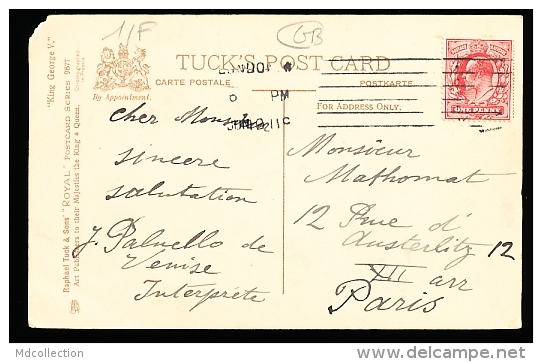 11F
GB
TUCK'S POST CARD
CARTE POSTALE
POSTKARTE
By Appointment.
FOR ADDRESS ONLY.
PM
ONE PENNY
"King George V."
Raphael Tuck & Sons' "ROYAL" POSTCARD SERIES 9677
Art Publishers to their Majesties the King & Queen.
Cher Monsieur
sincere
salutation
J. Paluello de
Venise
Interprète
Monsieur
Mathomat
12 Rue d'
Austerlitz 12
XII arr
Paris
Mdcollection
www.delcampe.net